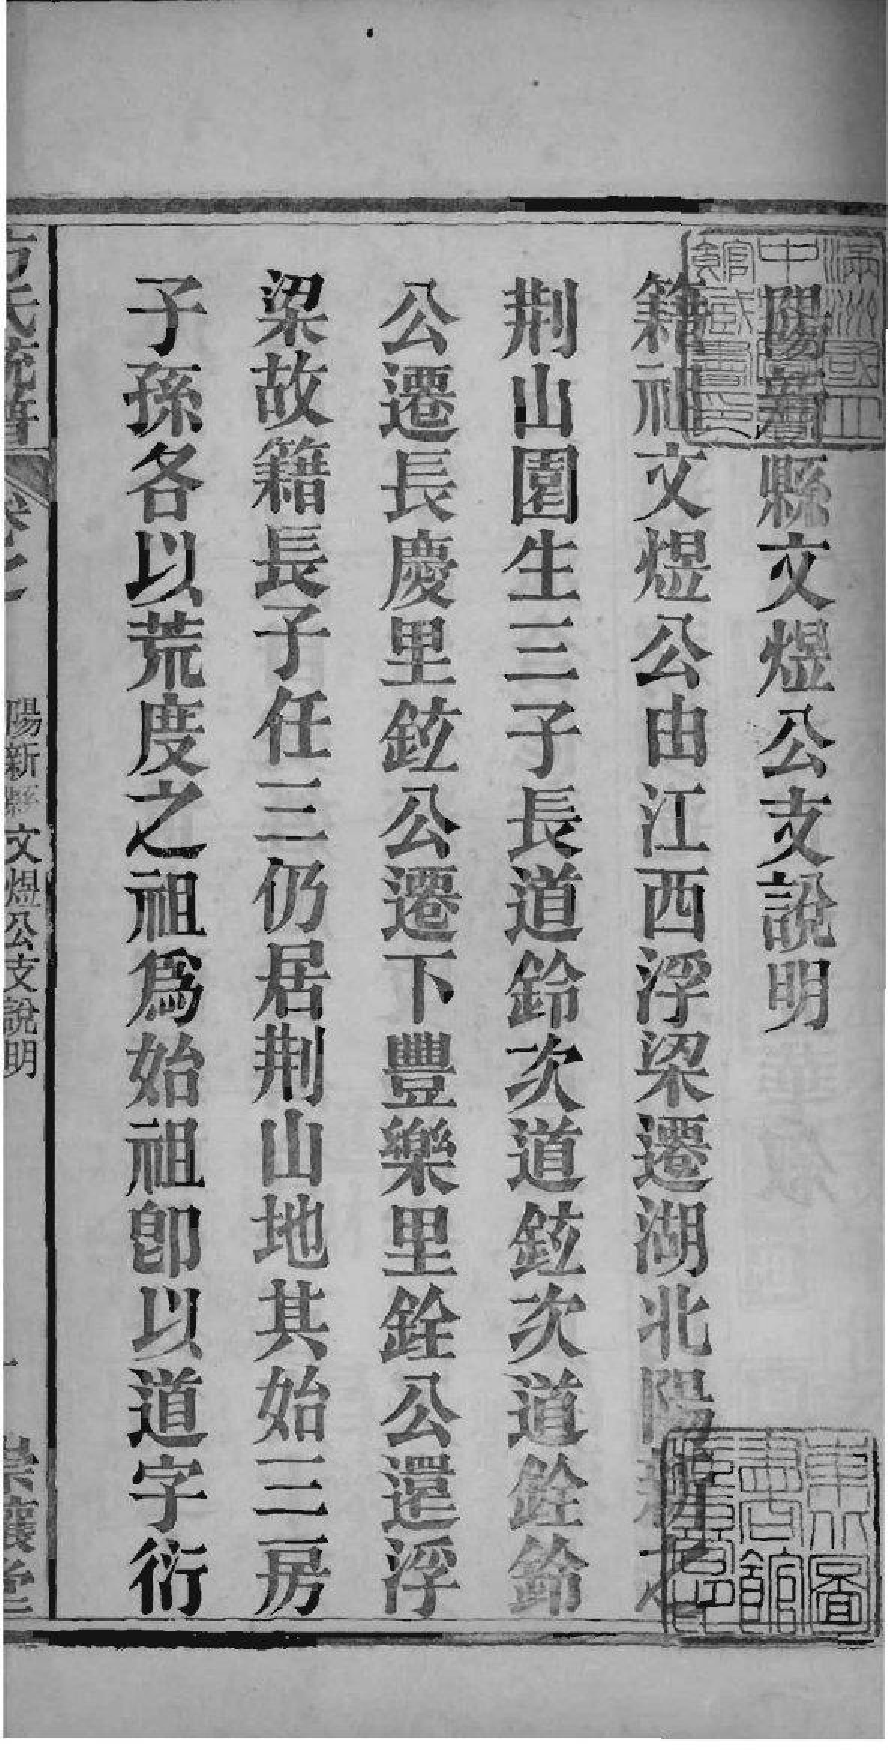 陽新縣文煜公支說明
籍祖文煜公由江西浮梁遷湖北陽新之
荆山園生三子長道鈴次道鉉次道銓鈴
公遷長慶里鉉公遷下豐樂里銓公還浮
梁故籍長子任三仍居荆山地其始三房
子孫各以荒度之祖爲始祖卽以道字衍
方氏統譜
卷之
陽新縣文煜公支說明
一
崇讓堂
滿洲國立中
館藏書印
東圖書館